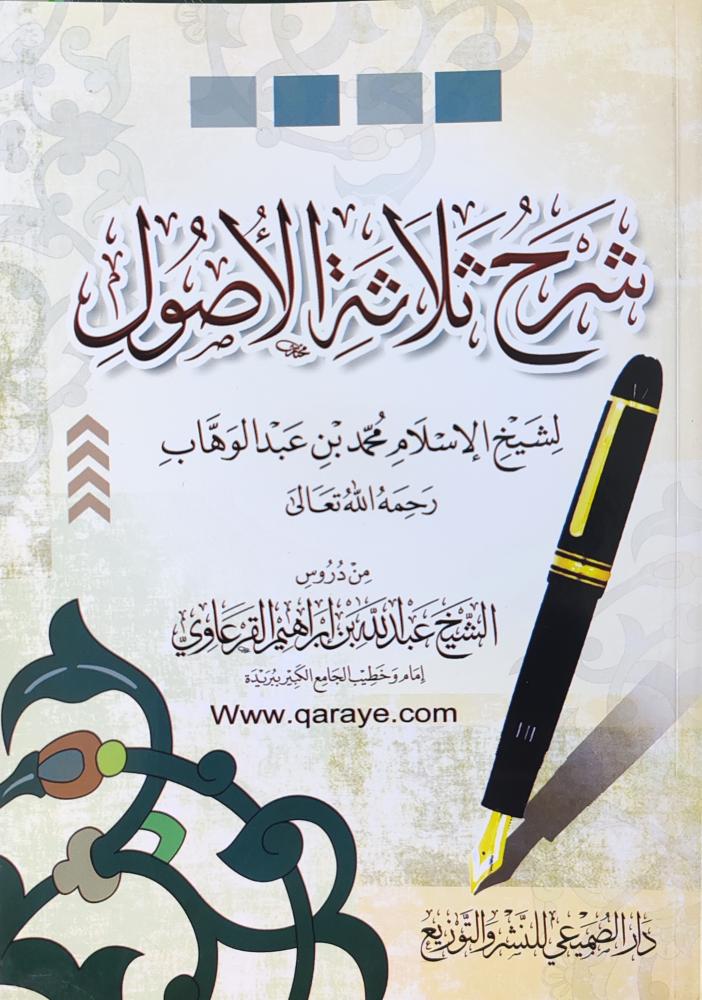 شَرْحُ ثَلَاثَةِ الْأُصُولِ
لِشَيْخِ الإِسْلَامِ مُحَمَّد بْنِ عَبْدِ الوَهَّابِ
رَحِمَهُ اللهُ تَعَالَى
مِنْ دُرُوسِ
الشَّيْخِ عَبْدِ اللَّهِ بْنِ إِبْرَاهِيمَ القَرْعَاوِيّ
إِمَام وَخَطِيْب الجَامِعِ الكَبِيْرِ بِبُرَيْدَة
Www.qaraye.com
دَارُ الصُّمَيْعِي لِلنَّشْرِ وَالتَّوْزِيعِ